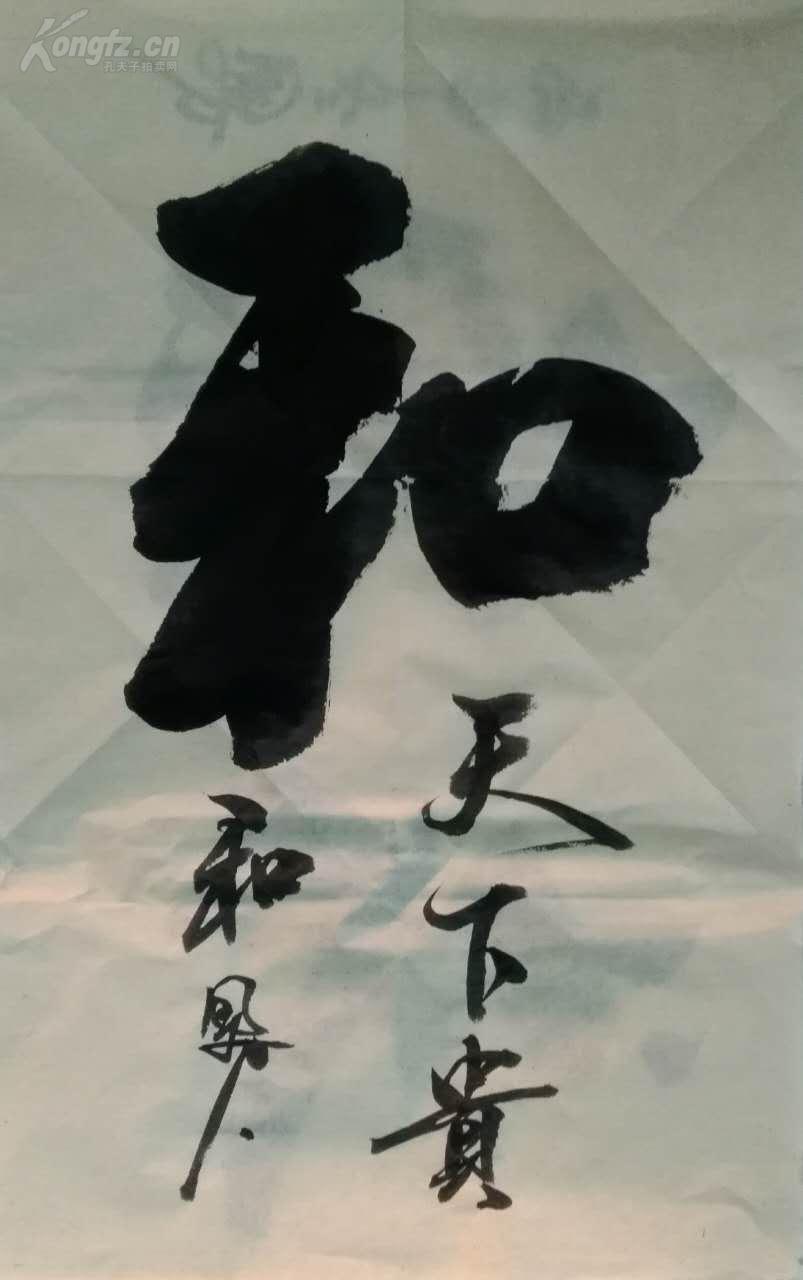 Kongfz.cn
孔夫子拍卖网
和
天下貴
和